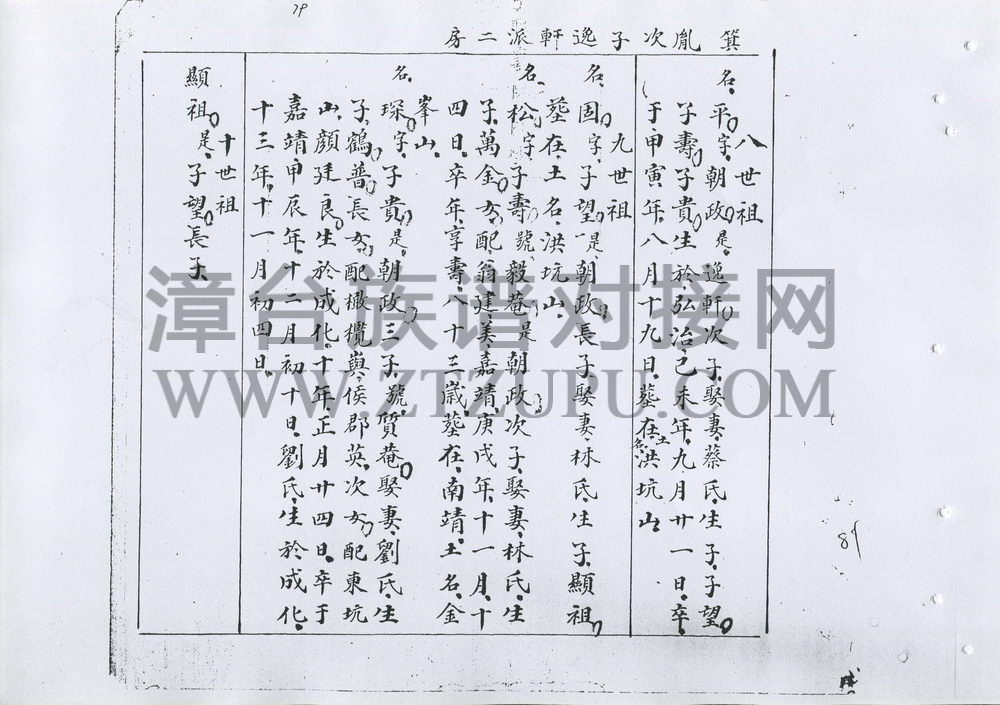 79
箕胤次子逸軒派二房
八世祖
名平字朝政是逸軒次子娶妻蔡氏生子子望
子壽子貴生於弘治己未年九月廿一日卒
于甲寅年八月十九日葬在土名洪坑山
九世祖
名固字子望是朝政長子娶妻林氏生子顯祖
葬在土名洪坑山
名松字子壽號毅菴是朝政次子娶妻林氏生
子萬金女配翁建美嘉靖庚戌年十一月十
四日卒年享壽八十三歲葬在南靖土名金
峯山
名琛字子貴是朝政三子號質菴娶妻劉氏生
子鶴普長女配橄欖輿侯郡英次女配東坑
山顏廷良生於成化十年正月廿四日卒于
嘉靖甲辰年十二月初十日劉氏生於成化
十三年十一月初四日
十世祖
顯祖是子望長子
89
漳台族谱对接网
WWW.ZTZUPU.COM